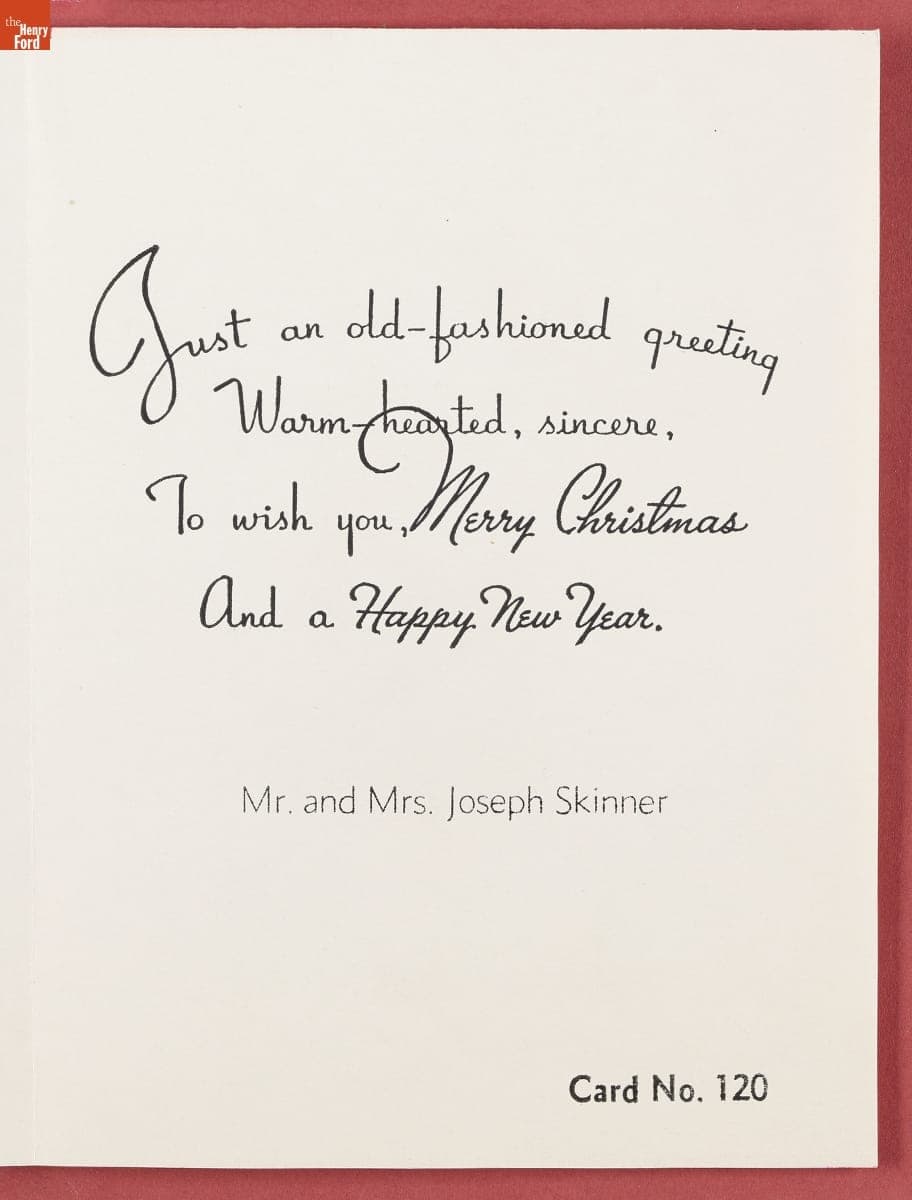 the
Henry
Ford
Just an old-fashioned greeting
Warm-hearted, sincere,
To wish you, Merry Christmas
And a Happy New Year.
Mr. and Mrs. Joseph Skinner
Card No. 120